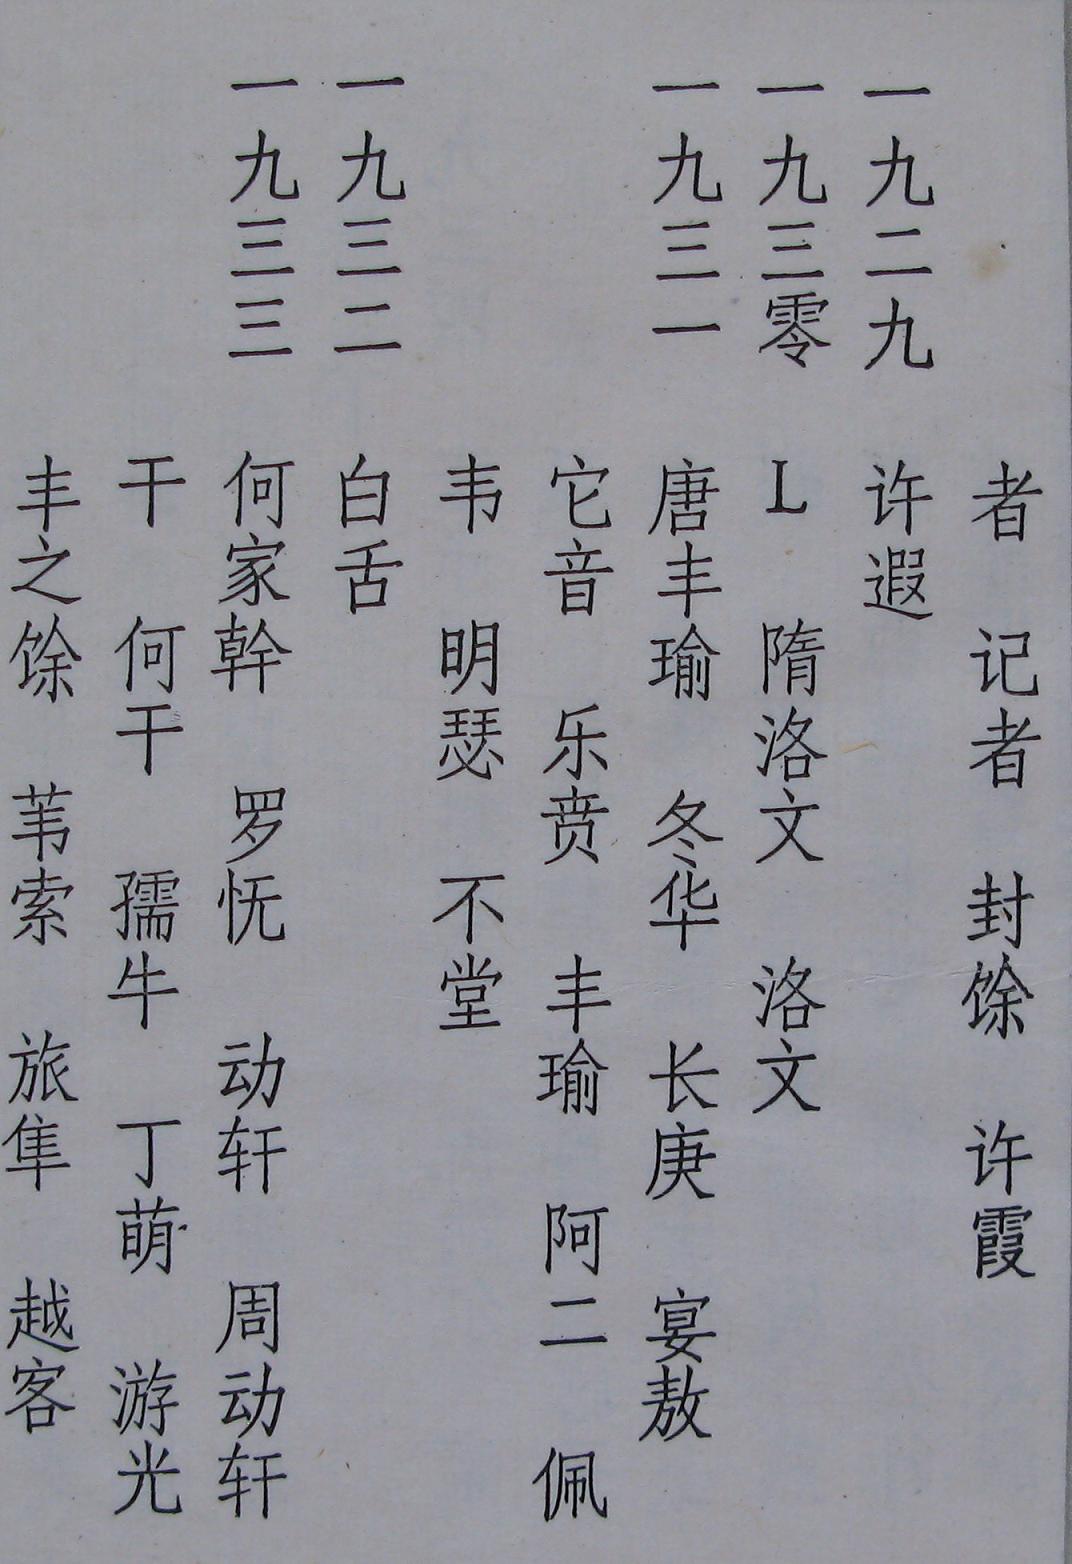 者 记者 封馀 许霞
一九二九 许遐
一九三零 L 隋洛文 洛文
一九三一 唐丰瑜 冬华 长庚 宴敖
它音 乐贲 丰瑜 阿二 佩
韦 明瑟 不堂
一九三二 白舌
一九三三 何家幹 罗怃 动轩 周动轩
干 何干 孺牛 丁萌 游光
丰之馀 苇索 旅隼 越客